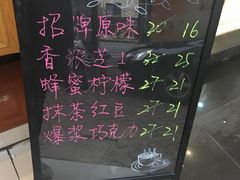 招牌原味 20 16
香浓芝士 32 25
蜂蜜柠檬 27-21
抹茶红豆 27-21
爆浆巧克力 27-21